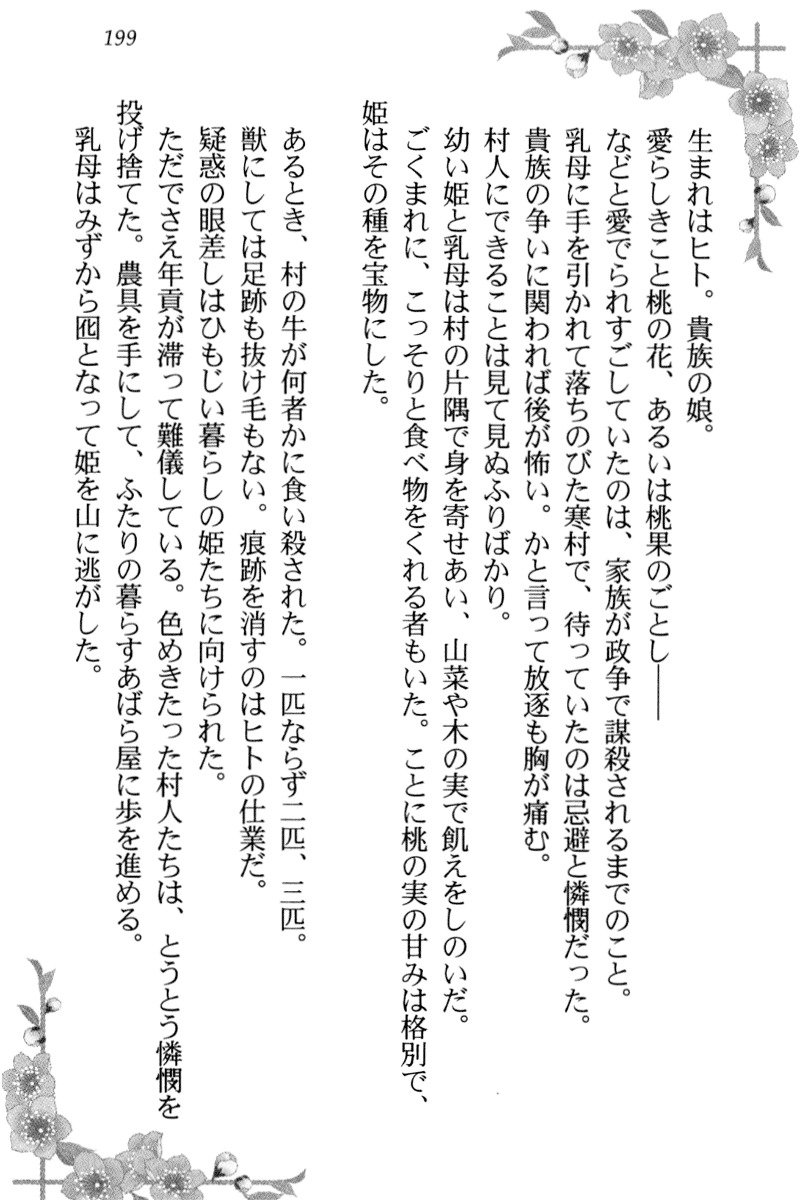 199
生まれはヒト。貴族の娘。
愛らしきこと桃の花、あるいは桃果のごとし――
などと愛でられすごしていたのは、家族が政争で謀殺されるまでのこと。
乳母に手を引かれて落ちのびた寒村で、待っていたのは忌避と憐憫だった。
貴族の争いに関われば後が怖い。かと言って放逐も胸が痛む。
村人にできることは見て見ぬふりばかり。
幼い姫と乳母は村の片隅で身を寄せあい、山菜や木の実で飢えをしのいだ。
ごくまれに、こっそりと食べ物をくれる者もいた。ことに桃の実の甘みは格別で、
姫はその種を宝物にした。
あるとき、村の牛が何者かに食い殺された。一匹ならず二匹、三匹。
獣にしては足跡も抜け毛もない。痕跡を消すのはヒトの仕業だ。
疑惑の眼差しはひもじい暮らしの姫たちに向けられた。
ただでさえ年貢が滞って難儀している。色めきたった村人たちは、とうとう憐憫を
投げ捨てた。農具を手にして、ふたりの暮らすあばら屋に歩を進める。
乳母はみずから囮となって姫を山に逃がした。